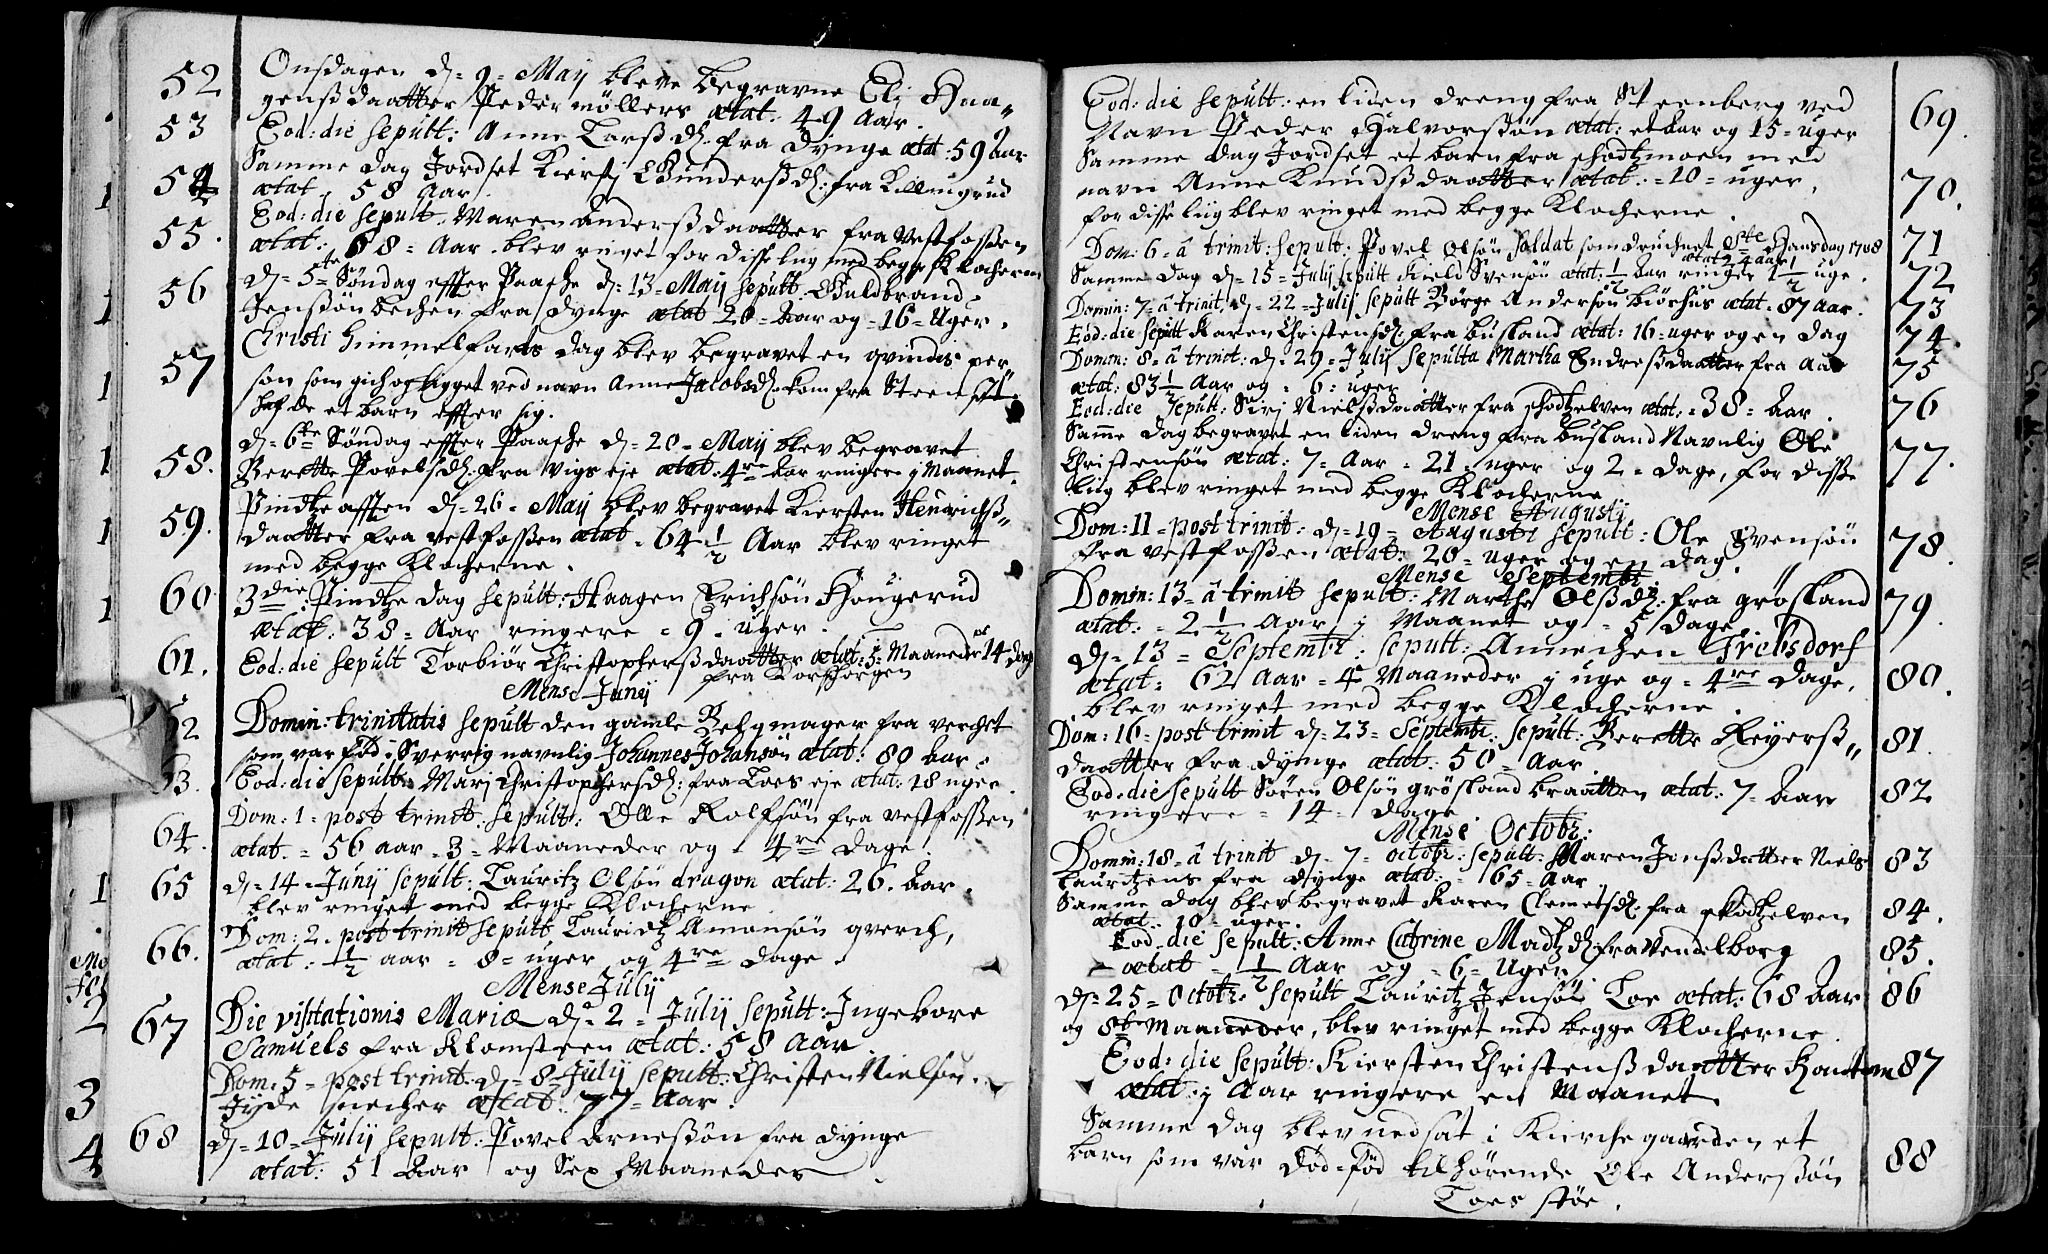 52 Onsdagen d. 9 = Maij bleve begravne Elj Haa„
genß daatter Peder møllers ætat: 49 Aar.
53 Eod: die sepult: Anne Larßd: fra dynge ætat: 59 Aar
54 Samme dag Jordset Kiersj Gundersßd: fra Killingrud
ætat = 58 Aar.
55. Eod: die sepult. Maren Andersßdaatter fra Vestfossen
ætat: 68 = Aar blev ringet for disse liig med begge Klocherne
56 d. 5te Søndag effter Paasche d. 13 = Maij sepult. Guldbrand
Jensßøn bechen fra dynge ætat 20 = Aar og = 16 = Uger.
57 Christi himmelfarts dag blev begravet en qvindes per„
son som gich og tigget ved navn Anne Jacobsd: kom fra Steen
hafde et barn effter sig.
58. d. 6te Søndag effter Paasche d. 20 = Maij blev begravet
Berette Povelsd: fra Vigs eje ætat: 4re Aar ringere j Maanet.
59. Pindtze afften d. 26 = Maij blev begravet Kiersten Henrichß„
daatter fra vestfossen ætat = 64 1/2 Aar blev ringet
med begge Klocherne.
60 3die Pindtze dag sepult: Haagen Erichsøn Hougerud
ætat: 38 = Aar ringere = 9 = uger.
61. Eod: die sepult Torbiør Christophersßdaatter ætat = 5 = Maaneder oc 14 dage
fra Korshorgen
Mense Junij
62 Domin: trinitatis sepult den gamle Bechmager fra verchet
som var fød i Sverrig navnlig Johannes Johansøn ætat: 80 Aar.
63. Eod: die sepult: Marj Christophersd: fra Loes eje ætat: 18 uger.
64. Dom: 1 = post trinit. sepult: Olle Rolfsøn fra vestfossen
ætat. = 56 aar = 3 = Maaneder og = 4re dage.
65 d. 14 = Junij sepult: Lauritz Olsøn dragon ætat: 26. Aar.
blev ringet med begge Klocherne
66. Dom: 2. post trinit sepult Lauridtz Amonsøn qverch,
ætat: 1/2 aar = 8 = uger og 4re dage.
Mense Julij
67 Die visitationis Mariæ d. 2 = Julij sepult: Ingebore
Samuels fra Klomsteen ætat: 58 Aar
Dom: 5 = post trinit: d. 8 = Julij sepult: Christen Nielsøn.
Jyde snecher ætat: 77 = Aar.
68 d. 10 = Julij sepult: Povel Arnesßøn fra dynge
ætat: 51 Aar og Sex Maaneder
Eod: die sepult: en liden dreng fra Steenberg ved 69.
Navn Peder Halvorsßøn ætat: et Aar og 15 = uger
Samme dag Jordset et barn fra Hodtzmoen med
navn Anne Knudsßdaatter ætat: = 10 = uger, 70.
for disse liig blev ringet med begge Klocherne.
Dom: 6 = â trinit: sepult. Povel Olsøn Soldat som druchnet Ste Hansdag 1708 71
ætat 24 aar
Samme dag d. 15 = Julij sepult Kield Svensøn ætat: 1/2 Aar ringer 1 1/2 uge. 72
Domin: 7 = â trinit, d. 22 = Julij sepult Børge Andersøn biørhus ætat = 87 Aar. 73
Eod: die sepult Karen Christensd: fra busland ætat: 16 = uger og en dag 74.
Domin: 8 = â trinit: d. 29 = Julij sepulta Martha Endresßdaatter fra Aas 75
ætat: 83 1/2 Aar og = 6: uger
Eod: die sepult: Sirj Nielsßdaatter fra Hodtzelven ætat. = 38 = Aar. 76
Samme dag begravet en liden dreng fra busland Navnlig Ole
Christensøn ætat: 7 = Aar = 21 = uger og 2 = dage, for disse 77.
liig blev ringet med begge Klocherne
Mense Augustij
Dom: 11 = post trinit: d. 19 = Augusti sepult: Ole Svensøn 78.
fra vestfossen ætat: 20 = uger og en dag.
Mense Septembr:
Domin: 13 = â trinit sepult: Marthe Olsßd: fra grøsland 79.
ætat: = 2 1/2 Aar j Maanet og = 5 dage.
d. 13 = Septembr: sepult: Annichen Friebsdorf
ætat = 62 Aar = 4 Maaneder j uge og = 4re dage, 80.
blev ringet med begge Klocherne.
Dom: 16 = post trinit d. 23 = Septembr. sepult: Berette Reyersß„ 81.
daatter fra dynge ætat: 50 = Aar
Eod: die sepult Søren Olsøn grøsland braatten ætat: 7 = Aar 82
ringere = 14 = dage
Mense Octobr:
Domin: 18 = â trinit d. 7 = octobr: sepult: Maren Jonsßdatter Niels 83
Lauritzens fra dynge ætat: = 65 = Aar
Samme dag blev begravet Karen Clemetsd: fra Hodtzelven 84.
ætat. 10 = uger.
Eod die sepult: Anne Catrine Madtzd: fra Vendelborg 85.
ætat = 1/2 Aar og = 6 = Uger
d. 25 = Octobr: sepult Lauritz Jensøn Loe ætat: 68 Aar 86
og 8te Maaneder, blev ringet med begge Klocherne.
Eod: die sepult: Kiersten Christensßdaatter Kantom 87
ætat: j Aar ringere en Maanet.
Samme dag blev nedsat i Kirchegaarden et
barn som var død-fød tilhørende Ole Andersßøn 88
Loes støe.